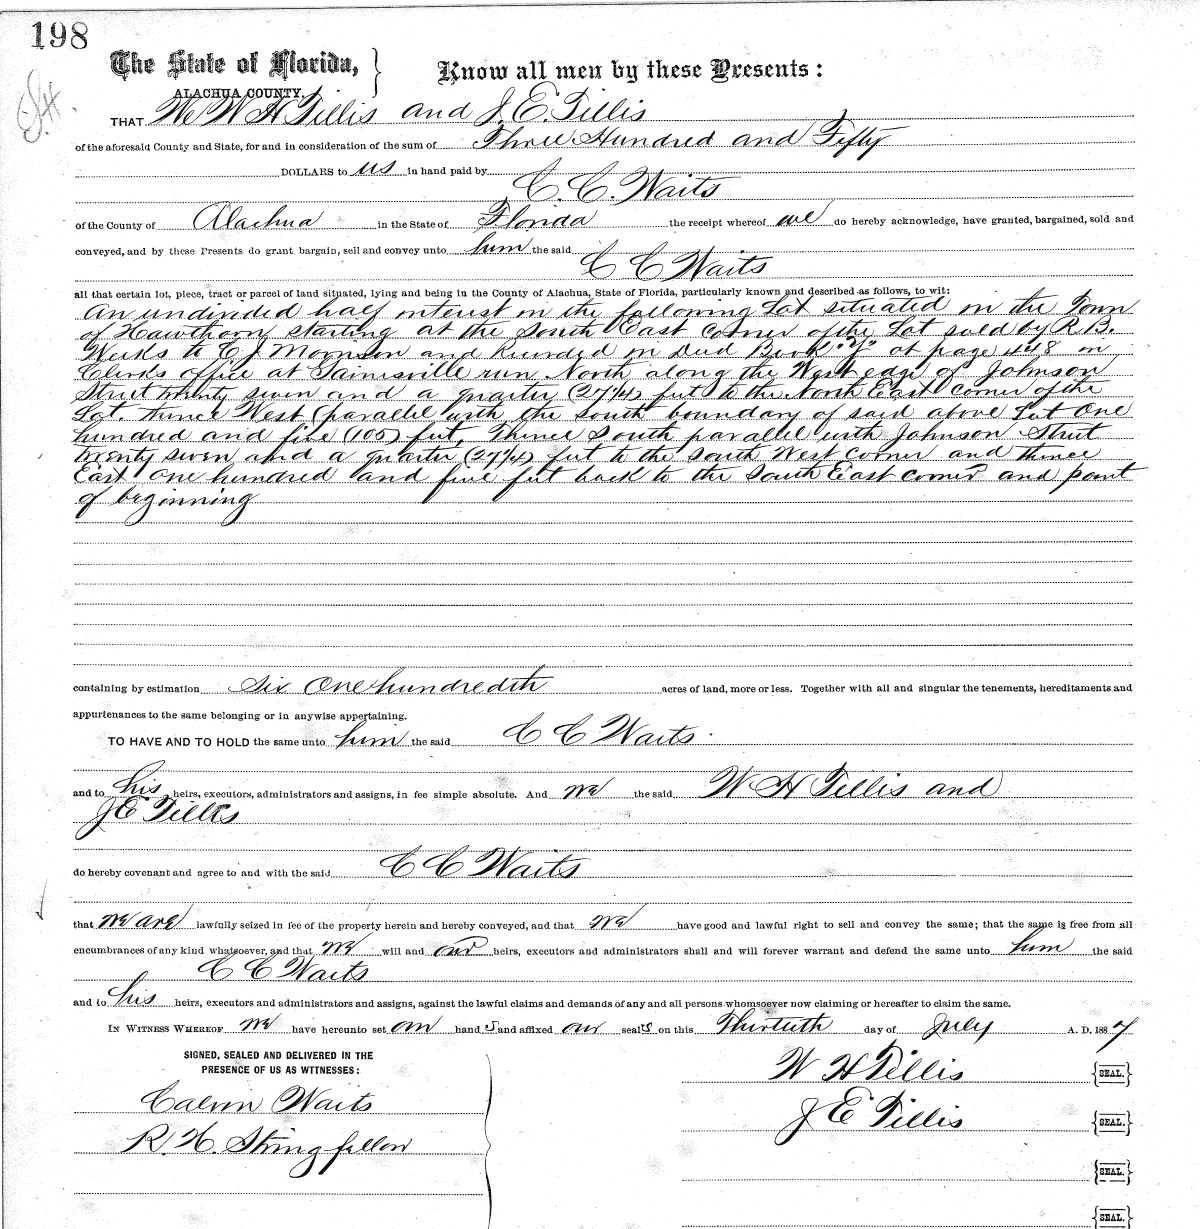 198
The State of Florida, } Know all men by these Presents :
ALACHUA COUNTY.
THAT We W H Tillis and J. E. Tillis
of the aforesaid County and State, for and in consideration of the sum of Three Hundred and Fifty
DOLLARS to us in hand paid by
C. C. Waits
of the County of Alachua in the State of Florida the receipt whereof we do hereby acknowledge, have granted, bargained, sold and
conveyed, and by these Presents do grant, bargain, sell and convey unto him the said
C C Waits
all that certain lot, piece, tract or parcel of land situated, lying and being in the County of Alachua, State of Florida, particularly known and described as follows, to wit:
An undivided half interest in the following Lot situated in the Town
of Hawthorn starting at the South East corner of the Lot sold by R. B.
Weeks to E J Morrison and Recorded in Deed Book at page 448 in
Clerks office at Gainesville run North along the West edge of Johnson
Street twenty seven and a quarter (27¼) feet to the North East corner of the
Lot. Thence West (parallel with the South boundary of said above Lot One
hundred and five (105) feet, Thence South parallel with Johnson Street
twenty seven and a quarter (27¼) feet to the South West corner and thence
East One hundred and five feet back to the South East corner and point
of beginning
containing by estimation Six One hundredith acres of land, more or less. Together with all and singular the tenements, hereditaments and
appurtenances to the same belonging or in anywise appertaining.
TO HAVE AND TO HOLD the same unto him the said C C Waits
and to his heirs, executors, administrators and assigns, in fee simple absolute. And we the said W H Tillis and
J E Tillis
do hereby covenant and agree to and with the said C C Waits
that we are lawfully seized in fee of the property herein and hereby conveyed, and that we have good and lawful right to sell and convey the same; that the same is free from all
encumbrances of any kind whatsoever, and that we will and our heirs, executors and administrators shall and will forever warrant and defend the same unto him the said
C C Waits
and to his heirs, executors and administrators and assigns, against the lawful claims and demands of any and all persons whomsoever now claiming or hereafter to claim the same.
IN WITNESS WHEREOF we have hereunto set our hands and affixed our seals on this Thirtieth day of July A. D. 1887
SIGNED, SEALED AND DELIVERED IN THE
PRESENCE OF US AS WITNESSES :
W H Tillis {SEAL.}
Calvin Waits
J E Tillis {SEAL.}
R. H. Stringfellow
{SEAL.}
{SEAL.}